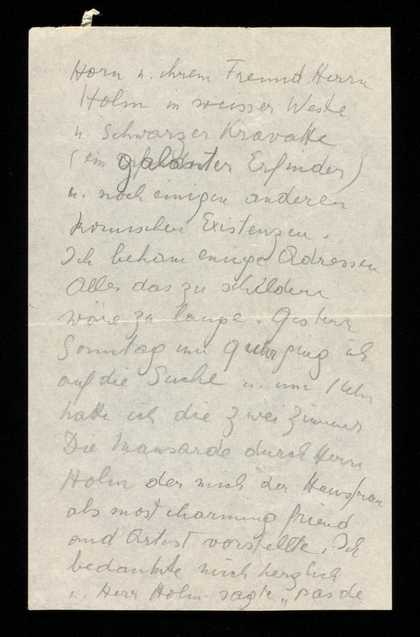 Horn u. ihrem Freund Herrn
Holm in weisser Weste
u. Schwarzer Kravatte
(ein galanter Erfinder)
u. noch einigen anderen
komischen Existenzen.
Ich bekam einige Adressen
Alles das zu schildern
wäre zu lange. Gestern
Sonntag um 9 uhr ging ich
auf die Suche u. um 1 Uhr
hatte ich die zwei Zimmer
Die Mansarde durch Herrn
Holm der mich der Hausfrau
als most charming friend
and Artist vorstellte. Ich
bedankte mich herzlich
u. Herr Holm sagte „pas de